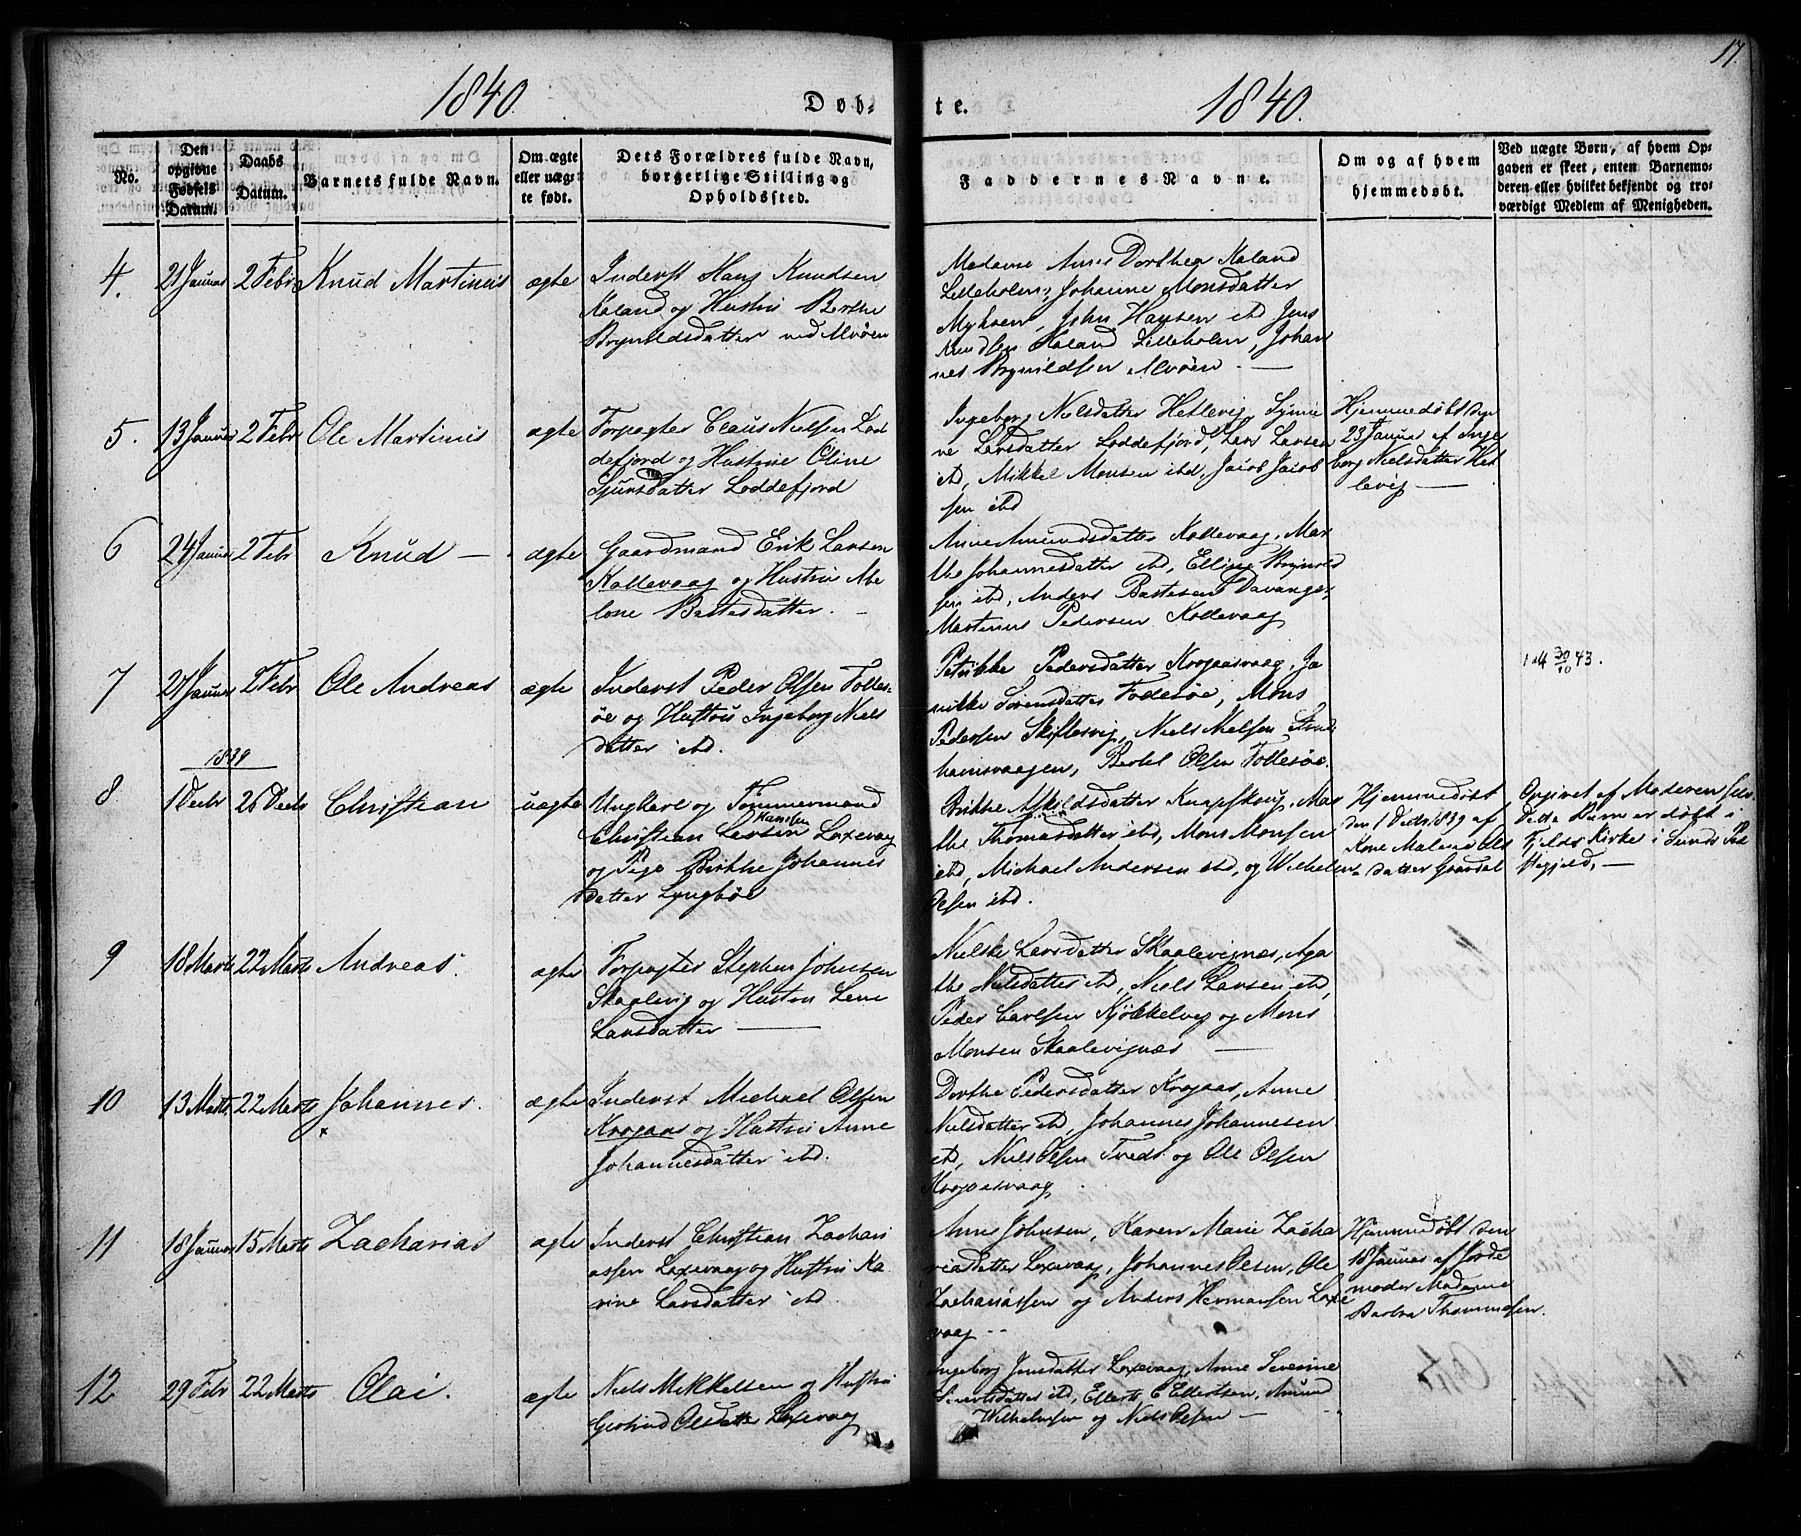 17.
1840. Døb- te. 1840.
No.
Den opgivne Fødsels Datum.
Daabs Datum.
Barnets fulde Navn.
Om ægte eller uægte født.
Dets Forældres fulde Navn, borgerlige Stilling og Opholdssted.
Faddernes Navne.
Om og af hvem hjemmedøbt.
Ved uægte Børn, af hvem Opgaven er skeet, enten Barnemoderen eller hvilket bekjendt og troværdigt Medlem af Menigheden.
4. 21 Januar 2 Febr Knud Martinus ægte
Inderst Hans Knudsen
Haland og Hustru Berthe
Brynildsdatter ved Alvøen
Madame Anne Dorthea Haland
Lilleholmen, Johanne Monsdatter
John Hansen ibd Jens
Knudsen Haland Lilleholm, Johan
nes Brynildsen Alvøen
5. 13 Januar 2 Febr Ole Martinus ægte
Forpagter Claus Nielsen Lod
defjord og Hustrue Oline
Sjursdatter Loddefjord
Ingeborg Nielsdatter Hetlevig, Synne
ve Larsdatter Loddefjord, Lars Larsen
ibd, Mikkel Monsen ibd, Jacob Jacob
sen ibd
Hjemmedøbt den
23 Januar af Inge
borg Nielsdatter Het
levig
6 24 Januar 2 Febr Knud ægte
Gaardmand Erik Larsen
Kollevaag og Hustru Abe
lone Bastesdatter.
Anne Amundsdatter Kollevaag, Mar
the Johannesdatter ibd, Elling Brynild
sen ibd, Anders Bastesen Davanger,
Martinus Pedersen Kollevaag
7 27 Januar 2 Febr Ole Andreas ægte
Inderst Peder Olsen Follес-
øe og Hustru Ingeborg Niels
datter ibd.
Petrikke Pedersdatter Krogaasvaag, Ja
nikke Sørensdatter Follesøe, Mons
Pedersen Skiftesvig, Niels Nielsen Strus
hamsvaagen, Bertel Olsen Follesøe.
30/10 43.
1839
8 1 Decbr 26 Decbr Christian uægte
Ungkarl og Tømmermand
Christian Larsen Hansen Laxevaag
og Pige Birthe Johannes
datter Lyngbøe
Birthe Askildsdatter Knapskoug, Mar
the Thomasdatter ibd, Mons Monsen
ibd, Michael Andersen ibd, og Wilhelm
Olsen ibd.
Hjemmedøbt
den 1 Decbr 1839 af
Ane Malena Ols
datter Gravdal
Opgivet af Moderen selv
Dette Barn er døbt i
Fjelds Kirke i Sunds Præ
stegjeld.
9 18 Marts 22 Marts Andreas. ægte
Forpagter Stephen Johnsen
Skaalevig og Hustru Lene
Larsdatter
Nielske Larsdatter Skaalevignæs, Aga
the Nielsdatter ibd, Niels Larsen ibd,
Peder Carlsen Kjøkkelvig og Mons
Monsen Skaalevignæs
10 13 Marts 22 Marts Johannes. ægte
Inderst Michael Olsen
Krogaas og Hustru Anne
Johannesdatter ibd.
Dorthe Pedersdatter Krogaas, Anne
Nielsdatter ibd, Johannes Johannesen
ibd, Niels Olsen Tvedt og Ole Olsen
Krogaasvaag
11 18 Januar 15 Marts Zacharias ægte
Inderst Christian Zachari
assen Laxevaag og Hustru Ka
rine Larsdatter ibd
Anne Johnsen, Karen Marie Zacha
riasdatter Laxevaag, Johannes Olsen, Ole
Zachariassen og Anders Hermansen Laxe
vaag
Hjemmedøbt den
18 Januar af Jorde
moder Madame
Barbra Thommesen.
12 29 Febr 22 Marts Olai. ægte
Niels Mikkelsen og Hustru
Gjertrud Olsdatter Laxevaag
Ingeborg Jensdatter Laxevaag, Anne Severine
Sivertsdatter ibd, Ellert E Ellertsen, Amund
Wilhelmsen og Niels Olsen